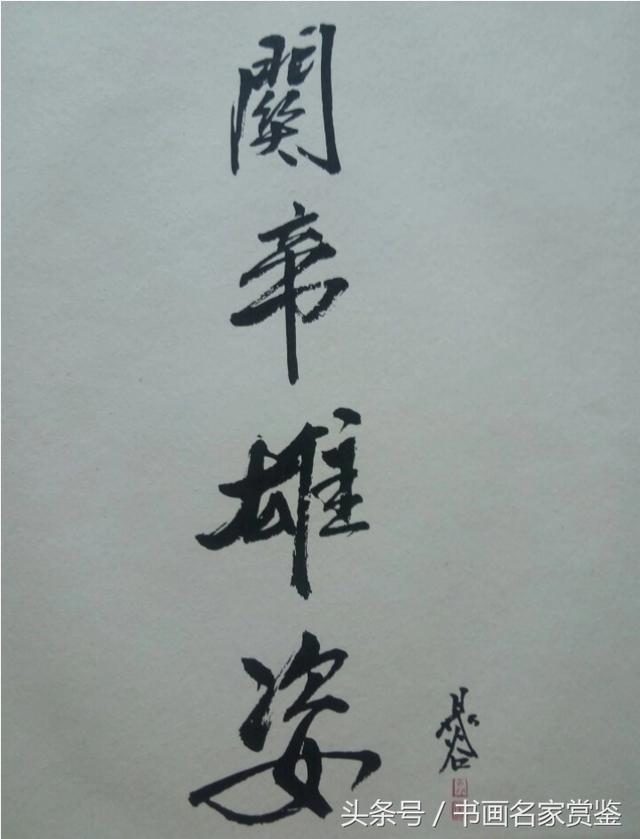 關帝雄姿
头条号／书画名家赏鉴